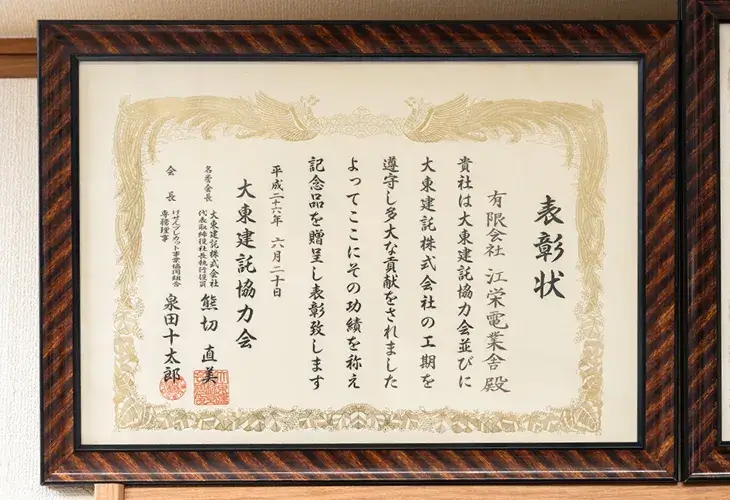 表彰状
有限会社 江栄電業舎 殿
貴社は大東建託協力会並びに
大東建託株式会社の工期を
遵守し多大な貢献をされました
よってここにその功績を称え
記念品を贈呈し表彰致します
平成二十六年 六月二十日
大東建託協力会
名誉会長
大東建託株式会社
代表取締役社長執行役員
熊切 直美
会長
けせんプレカット事業協同組合
専務理事
泉田十太郎